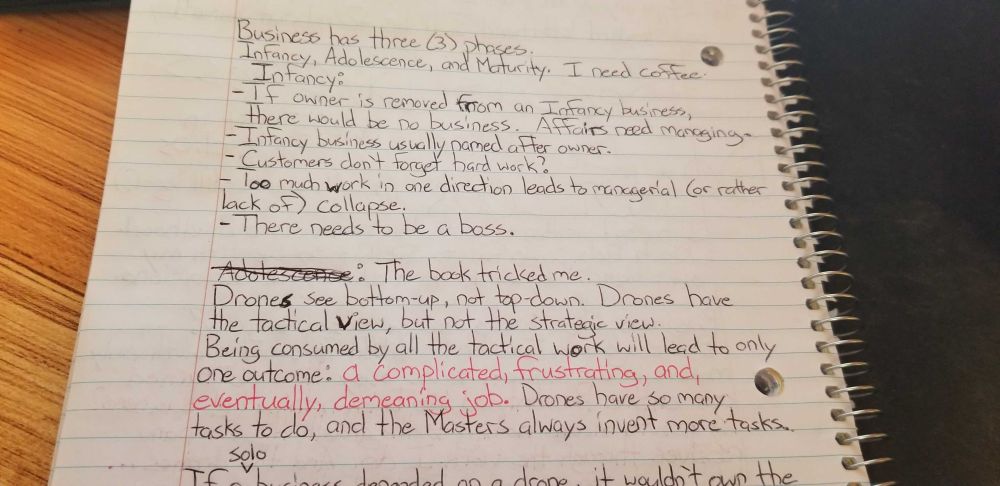 Business has three (3) phases.
Infancy, Adolescence, and Maturity. I need coffee.
Infancy:
- If owner is removed from an Infancy business,
there would be no business. Affairs need managing.
- Infancy business usually named after owner.
- Customers don't forget hard work?
- Too much work in one direction leads to managerial (or rather
lack of) collapse.
- There needs to be a boss.
Adolescence: The book tricked me.
Drones see bottom-up, not top-down. Drones have
the tactical view, but not the strategic view.
Being consumed by all the tactical work will lead to only
one outcome: a complicated, frustrating, and,
eventually, demeaning job. Drones have so many
tasks to do, and the Masters always invent more tasks.
solo
If a business depended on a drone, it wouldn't own the